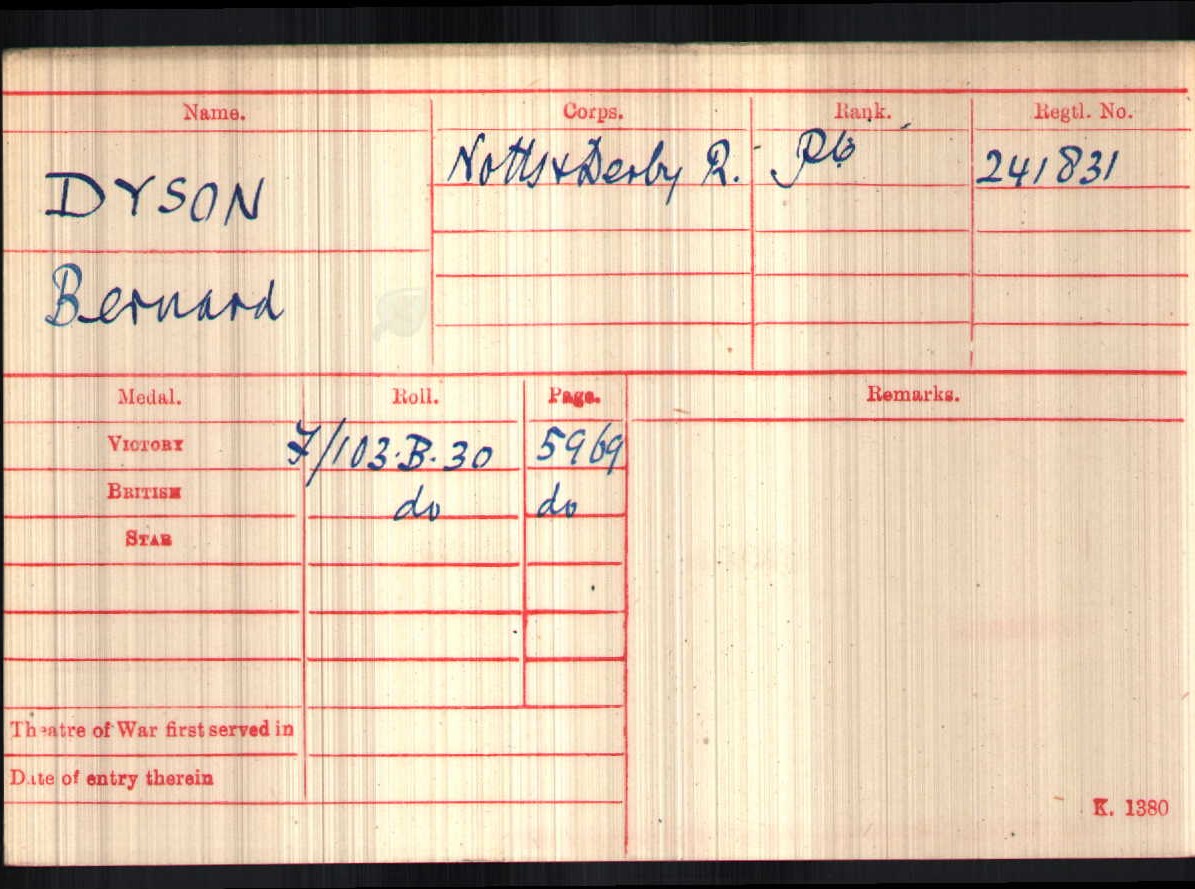 Name. Corps. Rank. Regtl. No.
DYSON
Bernard
Notts & Derby R. Pte 241831
Medal. Roll. Page. Remarks.
VICTORY F/103.B.30 5969
BRITISH do do
STAR
Theatre of War first served in
Date of entry therein
K. 1380